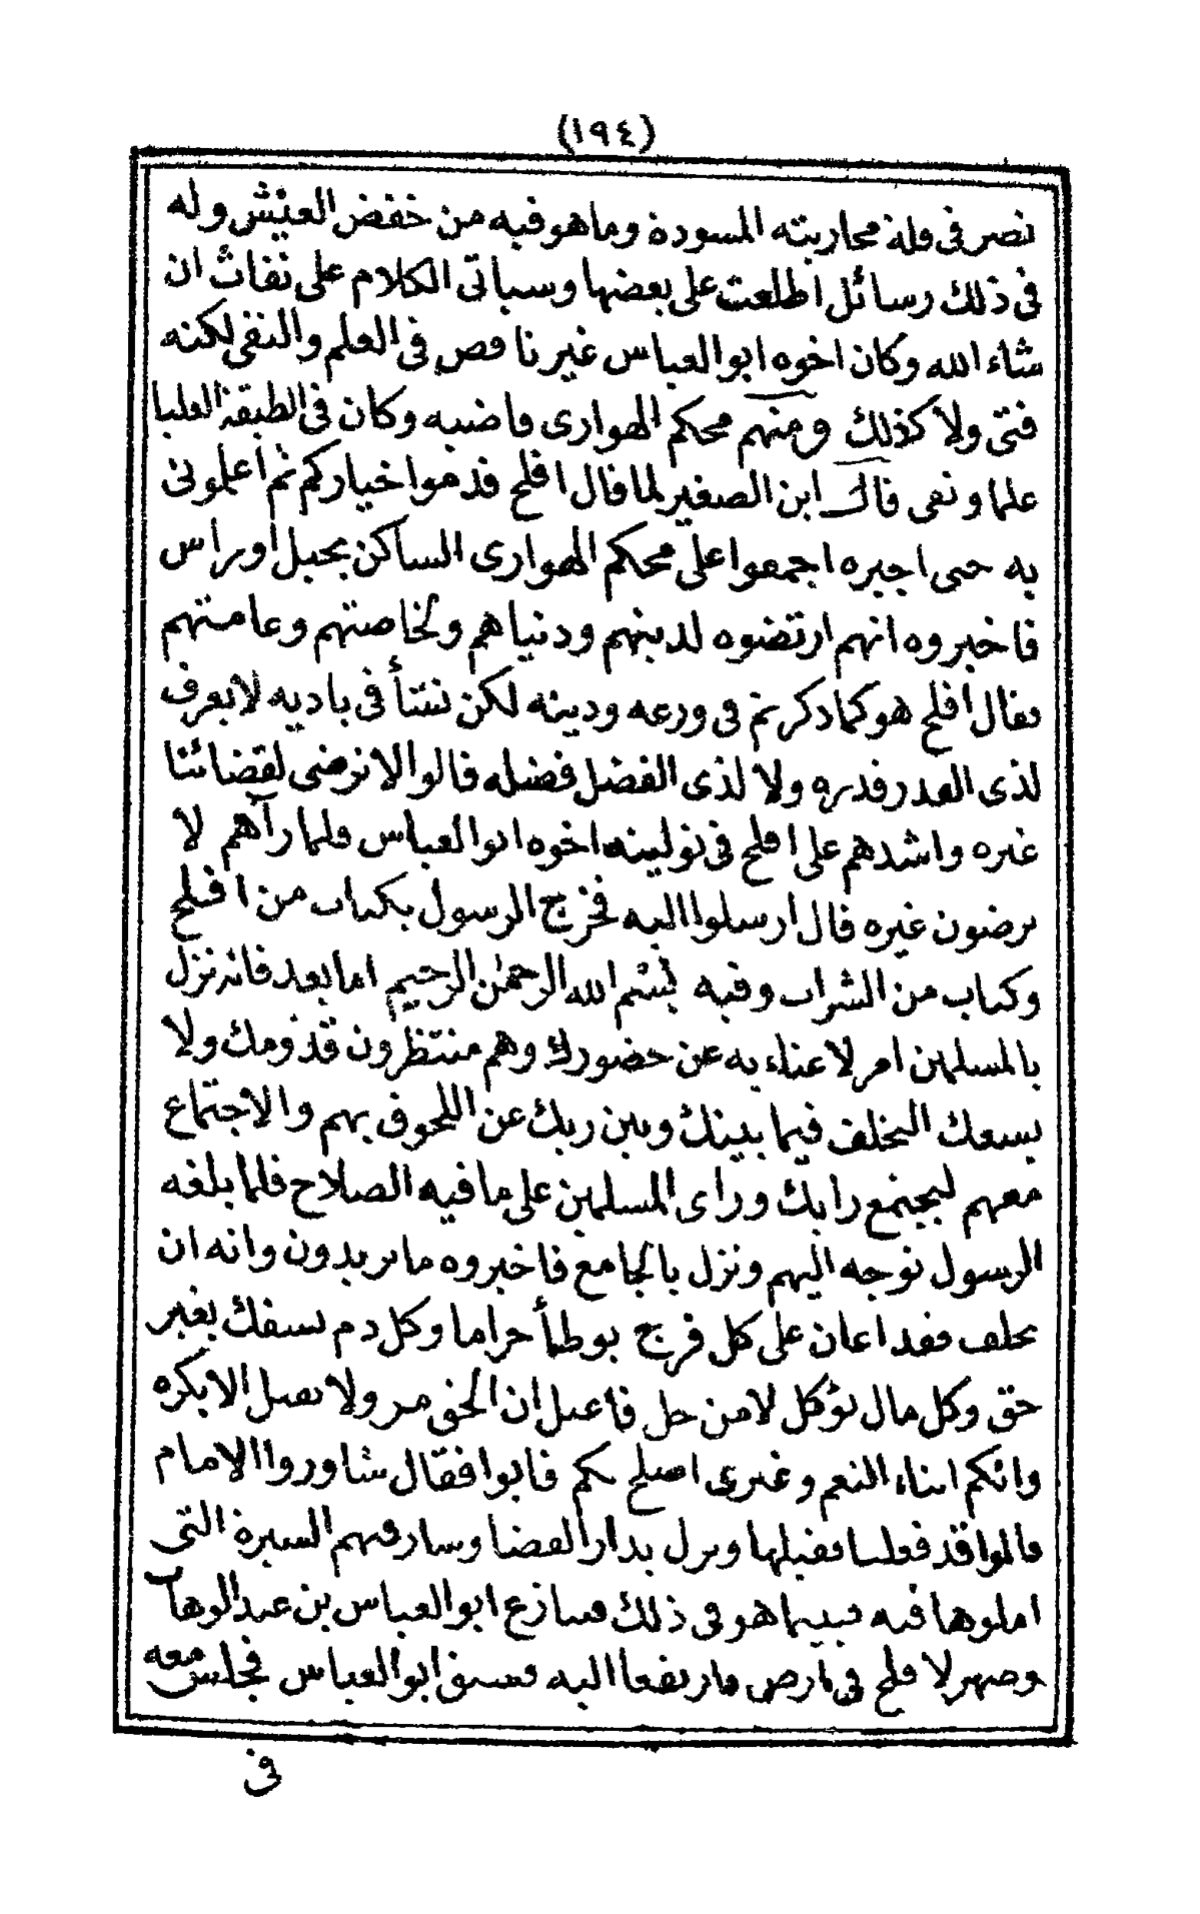 (١٩٤)
نصر فى قلة محاربته المسودة وما هو فيه من خفض العيش وله
فى ذلك رسائل اطلعت على بعضها وسياتى الكلام على نفاث ان
شاء الله وكان اخوه ابو العباس غير ناقص فى العلم والتقى لكنه
فتى ولا كذلك ومنهم محكم الهوارى قاضيه وكان فى الطبقة العليا
علما وتقى قال ابن الصغير لما قال افلح قدموا خياركم ثم اعلمونى
به حتى اجبره اجمعوا على محكم الهوارى الساكن بجبل اوراس
فاخبروه انهم ارتضوه لدينهم ودنياهم ولخاصتهم وعامتهم
فقال افلح هو كما ذكرتم فى ورعه ودينه لكن نشأ فى باديه لا يعرف
لذى القدر قدره ولا لذى الفضل فضله قالوا لا نرضى لقضائنا
غيره واشدهم على افلح فى توليته اخوه ابو العباس فلما رآهم لا
يرضون غيره قال ارسلوا اليه فخرج الرسول بكتاب من افلح
وكتاب من الشراب وفيه بسم الله الرحمن الرحيم اما بعد فانه نزل
بالمسلمين امر لا غناء به عن حضورك وهم منتظرون قدومك ولا
يسعك التخلف فيما بينك وبين ربك عن اللحوق بهم والاجتماع
معهم ليجتمع رايك وراى المسلمين على ما فيه الصلاح فلما بلغه
الرسول توجه اليهم ونزل بالجامع فاخبروه ما يريدون وانه ان
تخلف فقد اعان على كل فرج يوطأ حراما وكل دم يسفك بغير
حق وكل مال يؤكل لا من حل فاعتل ان الحق مر ولا يعمل الا بكره
وانكم ابناء النعم وغيرى اصلح لكم فابوا فقال شاوروا الامام
قالوا قد فعلنا فقبلها ونزل بدار القضا وسار فيهم السيرة التى
املوها فيه فبينما هو فى ذلك فتنازع ابو العباس بن عبد الوهاب
وصهر لافلح فى ارض فارتفعا اليه فسبق ابو العباس فجلس معه
فى